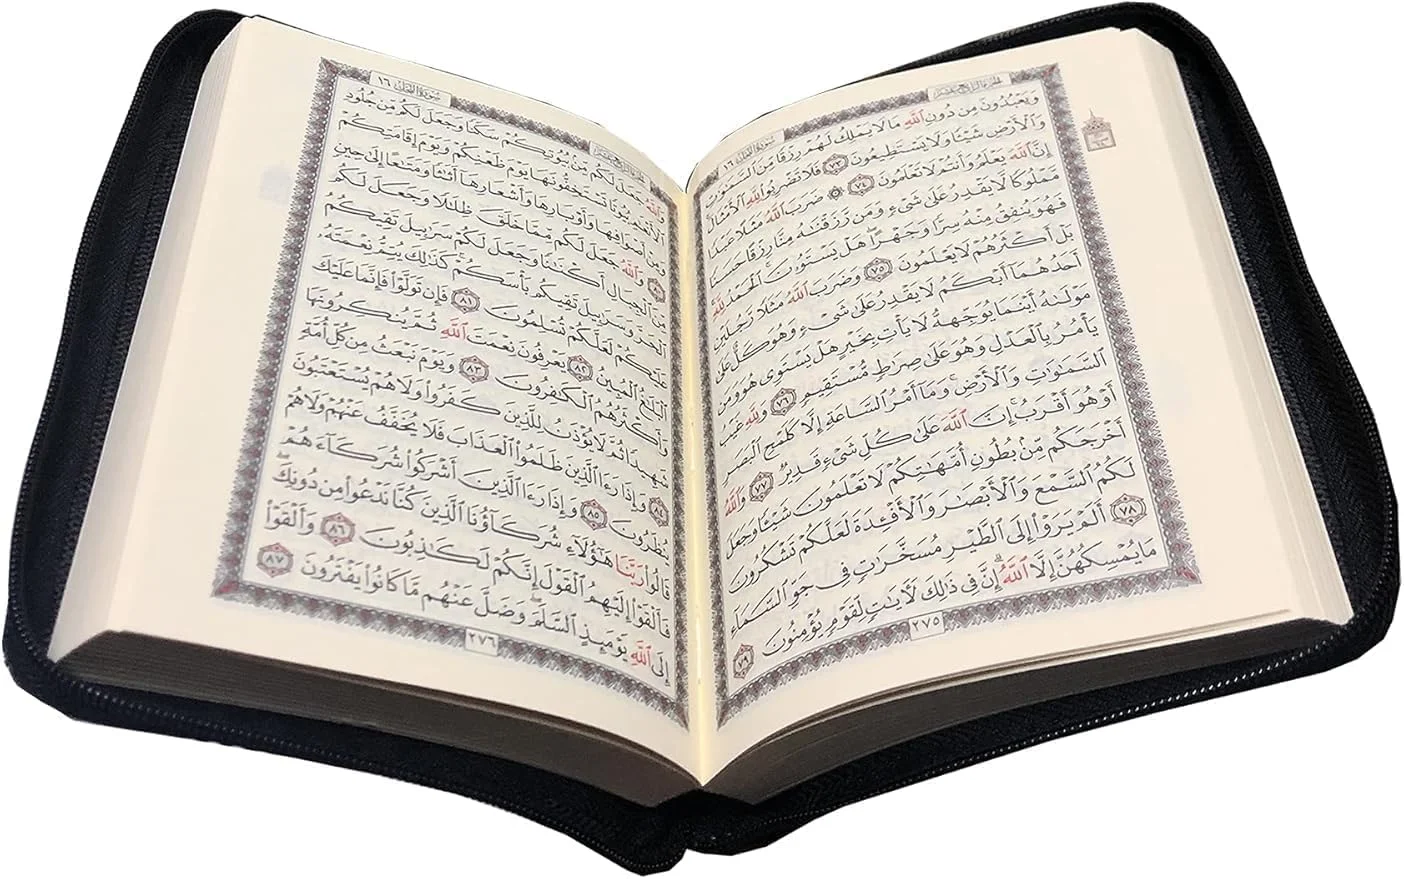 الجزء الرابع عشر
سورة النحل ١٦
وَيَعْبُدُونَ مِن دُونِ ٱللَّهِ مَا لَا يَمْلِكُ لَهُمْ رِزْقًا مِّنَ ٱلسَّمَٰوَٰتِ
وَٱلْأَرْضِ شَيْـًٔا وَلَا يَسْتَطِيعُونَ ٧٣ فَلَا تَضْرِبُوا۟ لِلَّهِ ٱلْأَمْثَالَ
إِنَّ ٱللَّهَ يَعْلَمُ وَأَنتُمْ لَا تَعْلَمُونَ ٧٤ ۞ ضَرَبَ ٱللَّهُ مَثَلًا عَبْدًا
مَّمْلُوكًا لَّا يَقْدِرُ عَلَىٰ شَىْءٍ وَمَن رَّزَقْنَٰهُ مِنَّا رِزْقًا حَسَنًا
فَهُوَ يُنفِقُ مِنْهُ سِرًّا وَجَهْرًا ۖ هَلْ يَسْتَوُۥنَ ۚ ٱلْحَمْدُ لِلَّهِ ۚ
بَلْ أَكْثَرُهُمْ لَا يَعْلَمُونَ ٧٥ وَضَرَبَ ٱللَّهُ مَثَلًا رَّجُلَيْنِ
أَحَدُهُمَآ أَبْكَمُ لَا يَقْدِرُ عَلَىٰ شَىْءٍ وَهُوَ كَلٌّ عَلَىٰ
مَوْلَىٰهُ أَيْنَمَا يُوَجِّههُّ لَا يَأْتِ بِخَيْرٍ ۖ هَلْ يَسْتَوِى هُوَ وَمَن
يَأْمُرُ بِٱلْعَدْلِ ۙ وَهُوَ عَلَىٰ صِرَٰطٍ مُّسْتَقِيمٍ ٧٦ وَلِلَّهِ غَيْبُ
ٱلسَّمَٰوَٰتِ وَٱلْأَرْضِ ۚ وَمَآ أَمْرُ ٱلسَّاعَةِ إِلَّا كَلَمْحِ ٱلْبَصَرِ
أَوْ هُوَ أَقْرَبُ ۚ إِنَّ ٱللَّهَ عَلَىٰ كُلِّ شَىْءٍ قَدِيرٌ ٧٧ وَٱللَّهُ
أَخْرَجَكُم مِّنۢ بُطُونِ أُمَّهَٰتِكُمْ لَا تَعْلَمُونَ شَيْـًٔا وَجَعَلَ
لَكُمُ ٱلسَّمْعَ وَٱلْأَبْصَٰرَ وَٱلْأَفْـِٔدَةَ ۙ لَعَلَّكُمْ تَشْكُرُونَ
٧٨ أَلَمْ يَرَوْا۟ إِلَى ٱلطَّيْرِ مُسَخَّرَٰتٍ فِى جَوِّ ٱلسَّمَآءِ
مَا يُمْسِكُهُنَّ إِلَّا ٱللَّهُ ۗ إِنَّ فِى ذَٰلِكَ لَءَايَٰتٍ لِّقَوْمٍ يُؤْمِنُونَ ٧٩
٢٧٥
سورة النحل ١٦
الجزء الرابع عشر
وَٱللَّهُ جَعَلَ لَكُم مِّنۢ بُيُوتِكُمْ سَكَنًا وَجَعَلَ لَكُم مِّن جُلُودِ
ٱلْأَنْعَٰمِ بُيُوتًا تَسْتَخِفُّونَهَا يَوْمَ ظَعْنِكُمْ وَيَوْمَ إِقَامَتِكُمْ ۙ
وَمِنْ أَصْوَافِهَا وَأَوْبَارِهَا وَأَشْعَارِهَآ أَثَٰثًا وَمَتَٰعًا إِلَىٰ حِينٍ
٨٠ وَٱللَّهُ جَعَلَ لَكُم مِّمَّا خَلَقَ ظِلَٰلًا وَجَعَلَ لَكُم
مِّنَ ٱلْجِبَالِ أَكْنَٰنًا وَجَعَلَ لَكُمْ سَرَٰبِيلَ تَقِيكُمُ
ٱلْحَرَّ وَسَرَٰبِيلَ تَقِيكُم بَأْسَكُمْ ۚ كَذَٰلِكَ يُتِمُّ نِعْمَتَهُۥ
عَلَيْكُمْ لَعَلَّكُمْ تُسْلِمُونَ ٨١ فَإِن تَوَلَّوْا۟ فَإِنَّمَا عَلَيْكَ
ٱلْبَلَٰغُ ٱلْمُبِينُ ٨٢ يَعْرِفُونَ نِعْمَتَ ٱللَّهِ ثُمَّ يُنكِرُونَهَا
وَأَكْثَرُهُمُ ٱلْكَٰفِرُونَ ٨٣ وَيَوْمَ نَبْعَثُ مِن كُلِّ أُمَّةٍ
شَهِيدًا ثُمَّ لَا يُؤْذَنُ لِلَّذِينَ كَفَرُوا۟ وَلَا هُمْ يُسْتَعْتَبُونَ
٨٤ وَإِذَا رَءَا ٱلَّذِينَ ظَلَمُوا۟ ٱلْعَذَابَ فَلَا يُخَفَّفُ عَنْهُمْ وَلَا هُمْ
يُنظَرُونَ ٨٥ وَإِذَا رَءَا ٱلَّذِينَ أَشْرَكُوا۟ شُرَكَآءَهُمْ
قَالُوا۟ رَبَّنَا هَٰٓؤُلَآءِ شُرَكَآؤُنَا ٱلَّذِينَ كُنَّا نَدْعُوا۟ مِن دُونِكَ ۖ
فَأَلْقَوْا۟ إِلَيْهِمُ ٱلْقَوْلَ إِنَّكُمْ لَكَٰذِبُونَ ٨٦ وَأَلْقَوْا۟
إِلَى ٱللَّهِ يَوْمَئِذٍ ٱلسَّلَمَ ۖ وَضَلَّ عَنْهُم مَّا كَانُوا۟ يَفْتَرُونَ ٨٧
٢٧٦